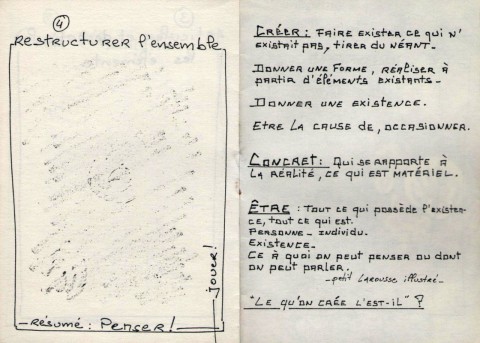 4
RESTRUCTURER l'ensemble
JOUER!
RÉSUMÉ : Penser!
CRÉER : FAIRE EXISTER CE QUI N'
EXISTAIT PAS, TIRER DU NÉANT.
DONNER UNE FORME, RÉALISER À
PARTIR D'ÉLÉMENTS EXISTANTS.
DONNER UNE EXISTENCE.
ETRE LA CAUSE DE, OCCASIONNER.
CONCRET : QUI SE RAPPORTE À
LA RÉALITÉ, CE QUI EST MATÉRIEL.
ÊTRE : TOUT CE QUI POSSÈDE l'EXISTEN-
CE, TOUT CE QUI EST.
PERSONNE - INDIVIDU.
EXISTENCE.
CE À QUOI ON PEUT PENSER OU DONT
ON PEUT PARLER.
- petit LAROUSSE illustré -
"LE QU'ON CRÉE L'EST-IL" ?